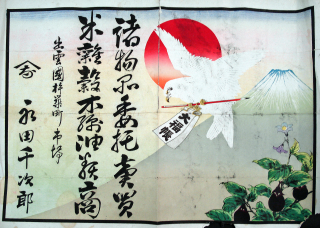 諸物品委托賣買
米雜穀木綿油蝋商
出雲國杵築町市場
永田千次郎
大福帳